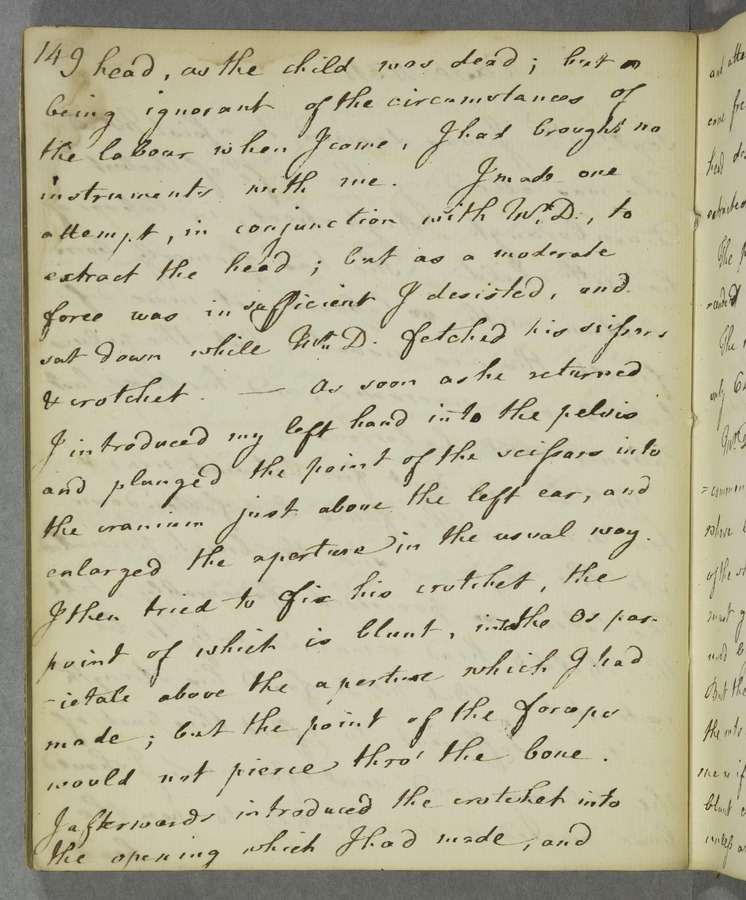 149 head, as the child was dead; but
being ignorant of the circumstances of
the labour when I came, I had brought no
instruments with me. I made one
attempt, in conjunction with Mr. D., to
extract the head; but as a moderate
force was insufficient I desisted, and
sat down while Mr. D. fetched his scissars
& crotchet. — As soon as he returned
I introduced my left hand into the pelvis
and plunged the point of the scissars into
the cranium just above the left ear, and
enlarged the aperture in the usual way.
I then tried to fix his crotchet, the
point of which is blunt, into the Os par-
-ietale above the aperture which I had
made; but the point of the forceps
would not pierce thro' the bone.
I afterwards introduced the crotchet into
the opening which I had made, and